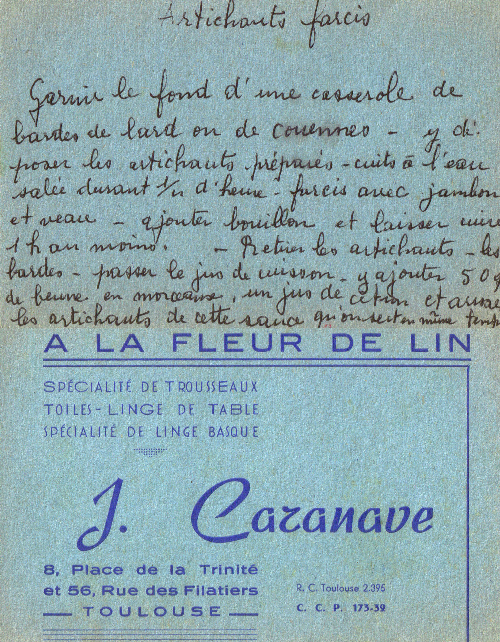 Artichauts farcis
Garnir le fond d'une casserole de
bardes de lard ou de couennes - y dé-
poser les artichauts préparés - cuits à l'eau
salée durant 1/2 d'heure - farcis avec jambon
et veau - ajouter bouillon et laisser cuire
1 h au moins. - Retirer les artichauts - les
bardes - passer le jus de cuisson - y ajouter 50g
de beurre en morceaux, un jus de citron et arroser
les artichauts de cette sauce qu'on sert en même temps
A LA FLEUR DE LIN
SPÉCIALITÉ DE TROUSSEAUX
TOILES - LINGE DE TABLE
SPÉCIALITÉ DE LINGE BASQUE
J. Cazanave
8, Place de la Trinité
et 56, Rue des Filatiers
TOULOUSE
R. C. Toulouse 2.395
C. C. P. 173-39